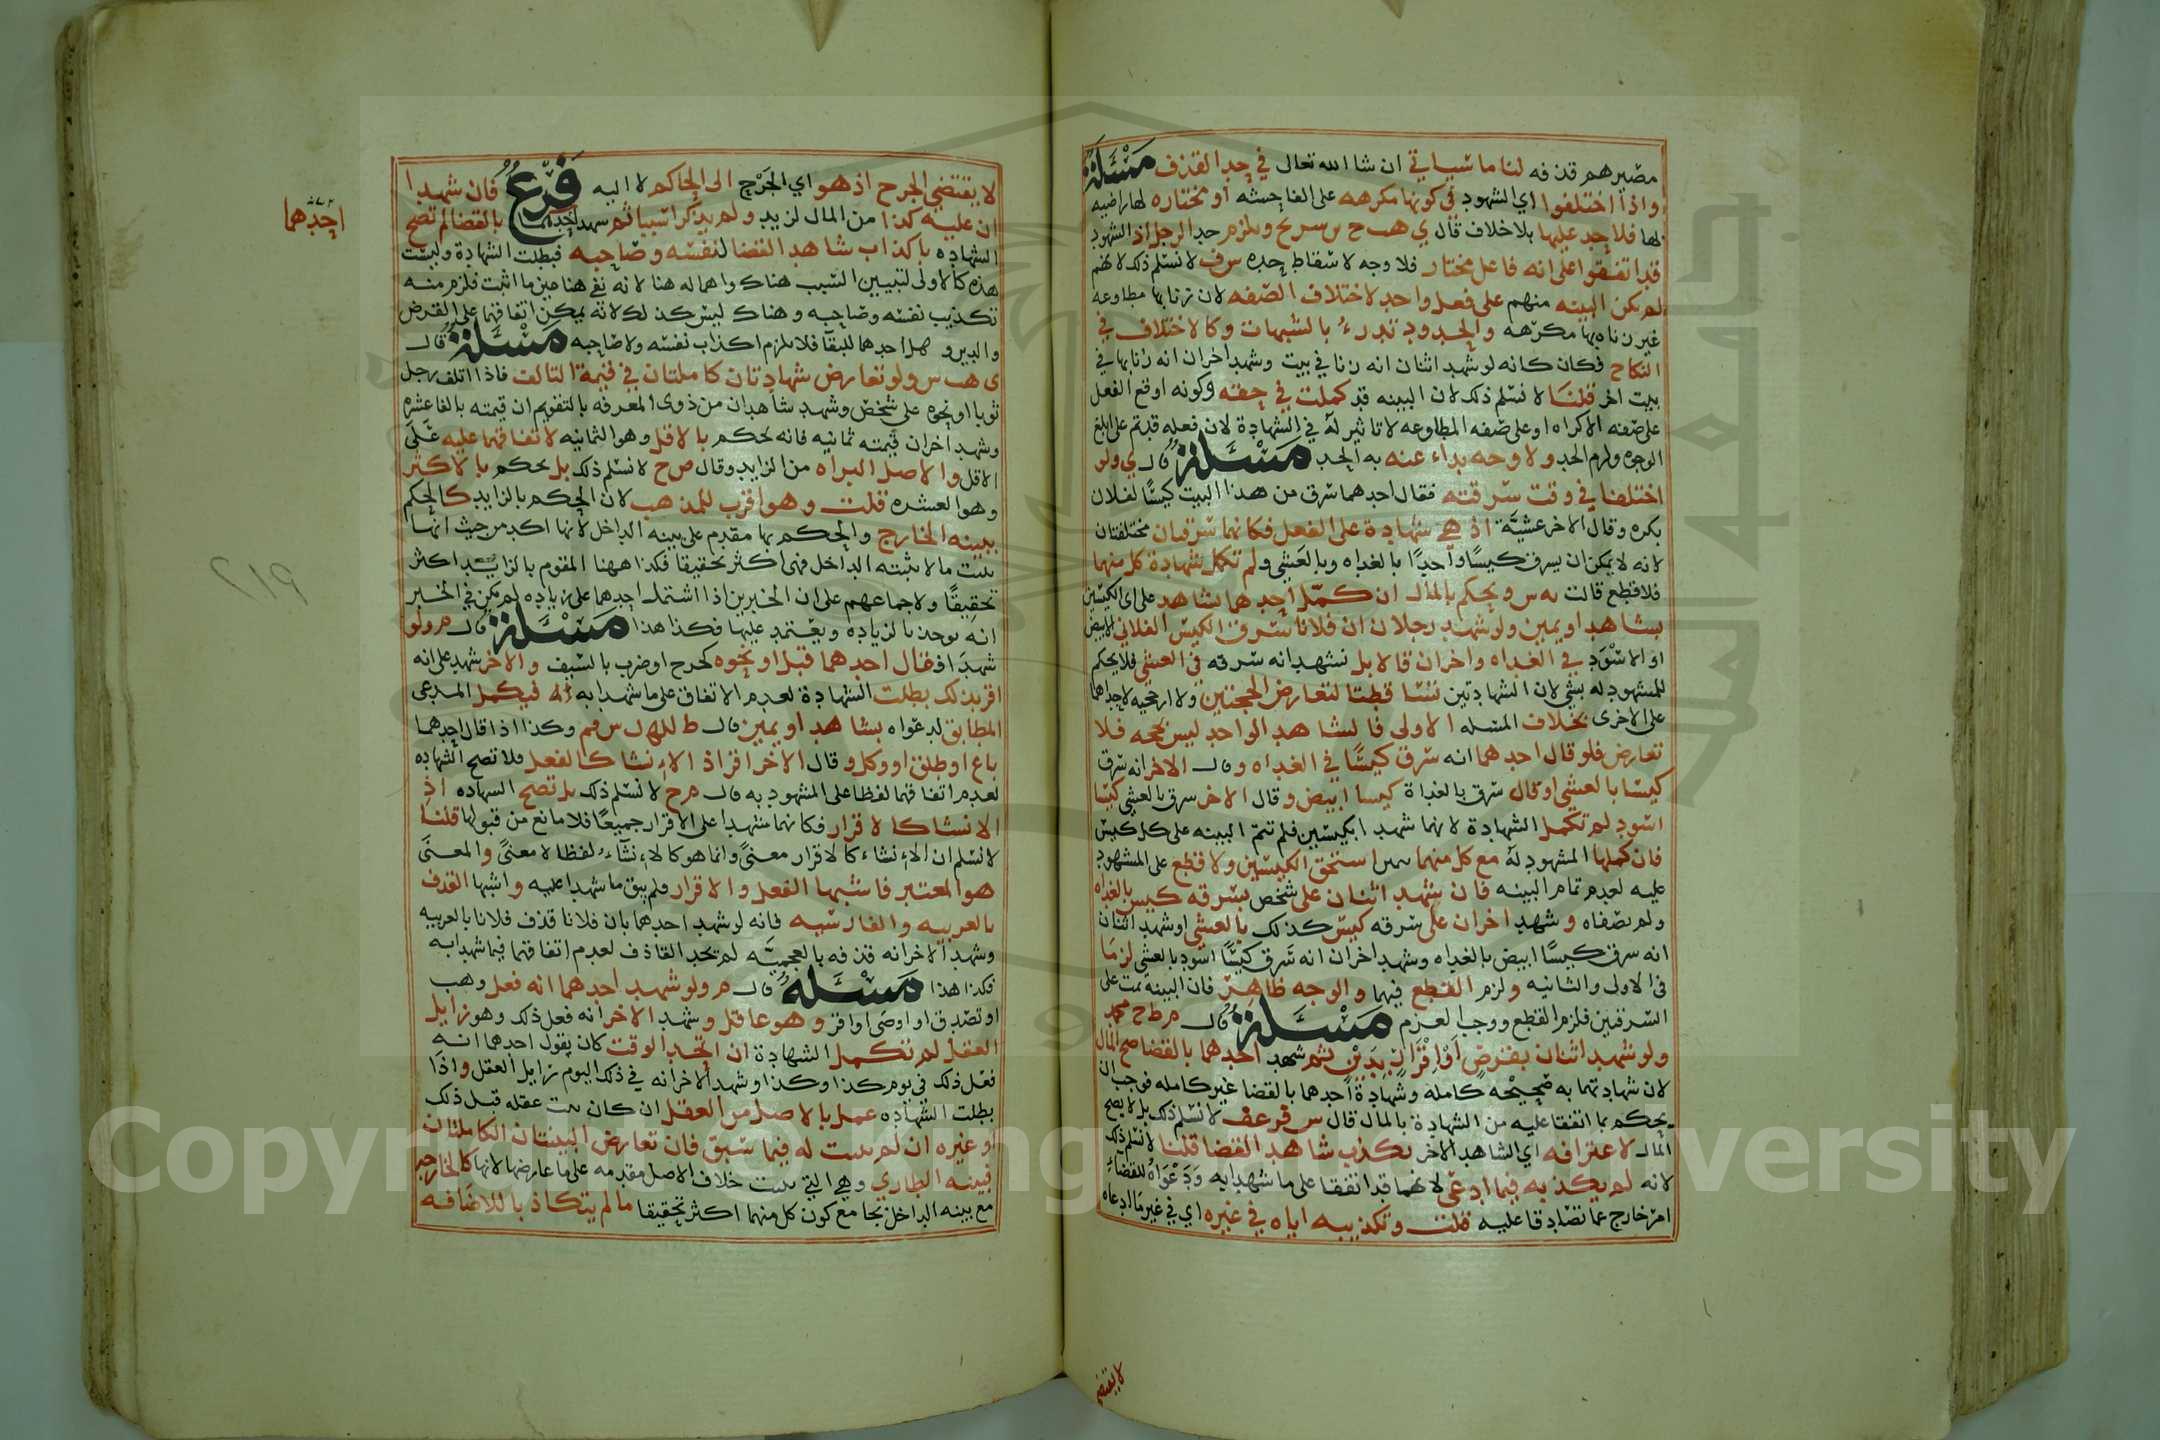 مصيرهم قذفه لنا ما سياتي ان شا الله تعالى في حد القذف مسئلة
واذا اختلفوا اي الشهود في كونها مكرهه على الفاحشه او مختاره لها راضيه
لها فلا حد عليها بلا خلاف قال ي هب ح س سريح ويلزم حد الرجل اذ الشهود
قد اتفقوا على انه فاعل مختار فلا وجه لاسقاط حده س ف لا نسلم ذلك لانهم
لم تكن البينه منهم على فعل واحد لاختلاف الصفه لان زناه بها مطاوعه
غير زناه بها مكرهه والحدود تدرء بالشبهات وكالاختلاف في
النكاح فكان كانه لو شهد اثنان انه زنا في بيت وشهد اخران انه زنا بها في
بيت اخر قلنا لا نسلم ذلك لان البينه قد كملت في حقه وكونه اوقع الفعل
على صفه الاكراه او على صفه المطاوعه لا تاثير له في الشهادة لان فعله قد تم على ابلغ
الوجوه ولزم الحد ولا وجه يداء عنه به الحد مسئلة قال ي ولو
اختلفا في وقت سرقته فقال احدهما سرق من هذا البيت كيسا لفلان
بكره وقال الاخر عشيّة اذ هي شهادة على الفعل فكانهما سرقتان مختلفتان
لانه لا يمكن ان يسرق كيسًا واحدًا بالغداه وبالعشي ولم تكمل شهادة كل منهما
فلا قطع قالت يه س ويحكم بالمال ان كمّل احدهما بشاهد على اي الكيسين
بشاهد او يمين ولو شهد رجلان ان فلانا سرق الكيس الفلاني الابيض
او الاسود في الغداه واخران قالا بل نشهد انه سرقه في العشي فلا يحكم
للمشهود له بشي لان الشهادتين تسا قطتا لتعارض الحجتين ولا ارجحيه لاحداهما
على الاخرى بخلاف المسله الاولى فالشاهد الواحد ليس بحجه فلا
تعارض فلو قال احدهما انه سرق كيسًا في الغداه وقال الاخر انه سرق
كيسا بالعشي او قال سرق بالغداة كيسا ابيض وقال الاخر سرق بالعشي كيسا
اسود لم تكمل الشهادة لانهما شهدا بكيسين فلم تتم البينه على كل كيس
فان كملها المشهود له مع كل منهما استحق الكيسين ولا قطع على المشهود
عليه لعدم تمام البينه فان شهد اثنان على شخص بسرقه كيس بالغداه
ولم يصفاه وشهد اخران على سرقه كيس كذلك بالعشي او شهد اثنان
انه سرق كيسًا ابيض بالغداه وشهد اخران انه سرق كيسًا اسود بالعشي لزما
في الاولى والثانيه ولزم القطع فيهما والوجه ظاهر فان البينه تمت على
السرقتين فلزم القطع ووجب الغرم مسئلة قال م ط ح محمد
ولو شهد اثنان بقرض او اقران بدين ثم شهد احدهما بالقضا صح المال
لان شهادتهما به صحيحه كامله وشهادة احدهما بالقضا غير كامله فوجب ان
يحكم بما اتفقا عليه من الشهادة بالمال قال س فر عف لا نسلم ذلك بل لا يصح
المال لاعترافه اي الشاهد الاخر بكذب شاهد القضا قلنا لا نسلم ذلك
لانه لم يكذبه فيما ادعى لانهما قد اتفقا على ما شهدا به ودعواه للقضاء
امر خارج عما تصادقا عليه قلت وتكذيبه اياه في غيره اي في غير ما ادعاه
لا يقتضي
لا يقتضي الجرح اذ هو اي الجرح الى الحاكم لا اليه فرع فان شهدا
ان عليه كذا من المال لزيد ولم يذكرا سببا ثم شهد احدهما بالقضا لم تصح
احدهما
الشهاده باكذاب شاهد القضا لنفسه وصاحبه فبطلت الشهادة وليست
هذه كالاولى لتبيين السبب هناك واهماله هنا لانه نفى هنا عين ما اثبت فلزم منه
تكذيب نفسه وصاحبه وهناك ليس كذلك لانه يمكن اتفاقهما على القرض
والدين و احدهما للبقا فلا يلزم اكذاب نفسه ولا صاحبه مسئلة قال
ى هب س ولو تعارض شهادتان كاملتان في قيمة التالف فاذا اتلف رجل
ثوبا او نحوه على شخص وشهد شاهدان من ذوي المعرفه بالتقويم ان قيمته بالغا عشره
وشهد اخران قيمته ثمانيه فانه يحكم بالاقل وهو الثمانيه لاتفاقهما عليه على
الاقل والاصل البراه من الزايد وقال ص ح لا نسلم ذلك بل يحكم بالاكثر
وهو العشره قلت وهو اقرب للمذهب لان الحكم بالزايد كالحكم
ببينه الخارج والحكم بها مقدم على بينه الداخل لانها اكد من حيث انها
تثبت ما لا تثبته الداخل فهي اكثر تحقيقا فكذا ههنا المقوم بالزايد اكثر
تحقيقًا ولاجماعهم على ان الخبرين اذا اشتمل احدهما على زياده لم يكن في الخبر
انه يوخذ بالزياده ويعتمد عليها فكذا هذا مسئلة قال م ولو
شهد افقال احدهما قتل او نحوه كجرح او ضرب بالسيف والاخر شهد على انه
اقر بذلك بطلت الشهادة لعدم الاتفاق على ما شهدا به فيكمل المدعي
المطابق لدعواه بشاهد او يمين قال ط وكذا اذا قال احدهما
باع او طلق او وكل وقال الاخر اقر اذ الانشا كالفعل فلا تصح الشهاده
لعدم اتفاقهما لفظا على المشهود به قال م ح لا نسلم ذلك بل تصح الشهاده اذ
الانشا كالاقرار فكانهما شهدا على الاقرار جميعًا فلا مانع من قبولها قلنا
لا نسلم ان الانشاء كالاقرار معنىً وانما هو كالانشآء لفظا لا معنىً والمعنى
هو المعتبر فاشبها الفعل والاقرار فلم يبق ما شهدا عليه واشبها القذف
بالعربيه والفارسيه فانه لو شهد احدهما بان فلانا قذف فلانا بالعربيه
وشهد الاخر انه قذفه بالعجميّه لم يحد القاذف لعدم اتفاقهما فيما شهدا به
فكذا هذا مسئله قال م ولو شهد احدهما انه فعل وهب
او تصدق او اوصى او اقر وهو عاقل وشهد الاخر انه فعل ذلك وهو زايل
العقل لم تكمل الشهادة ان اتحد الوقت كان يقول احدهما انه
فعل ذلك في يوم كذا وكذا وشهد الاخر انه في ذلك اليوم زايل العقل واذا
بطلت الشهاده عمل بالاصل من العقل ان كان ثبت عقله قبل ذلك
او غيره ان لم يثبت له فيما سبق فان تعارض البينتان الكاملتان
فبينه الطاري وهي التي تثبت خلاف الاصل مقدمه على ما عارضها لانها كالخارجه
مع بينه الداخل بجامع كون كل منهما اكثر تحقيقا ما لم يتكاذبا للاضافه
٢١٩
Copyright © King Saud University